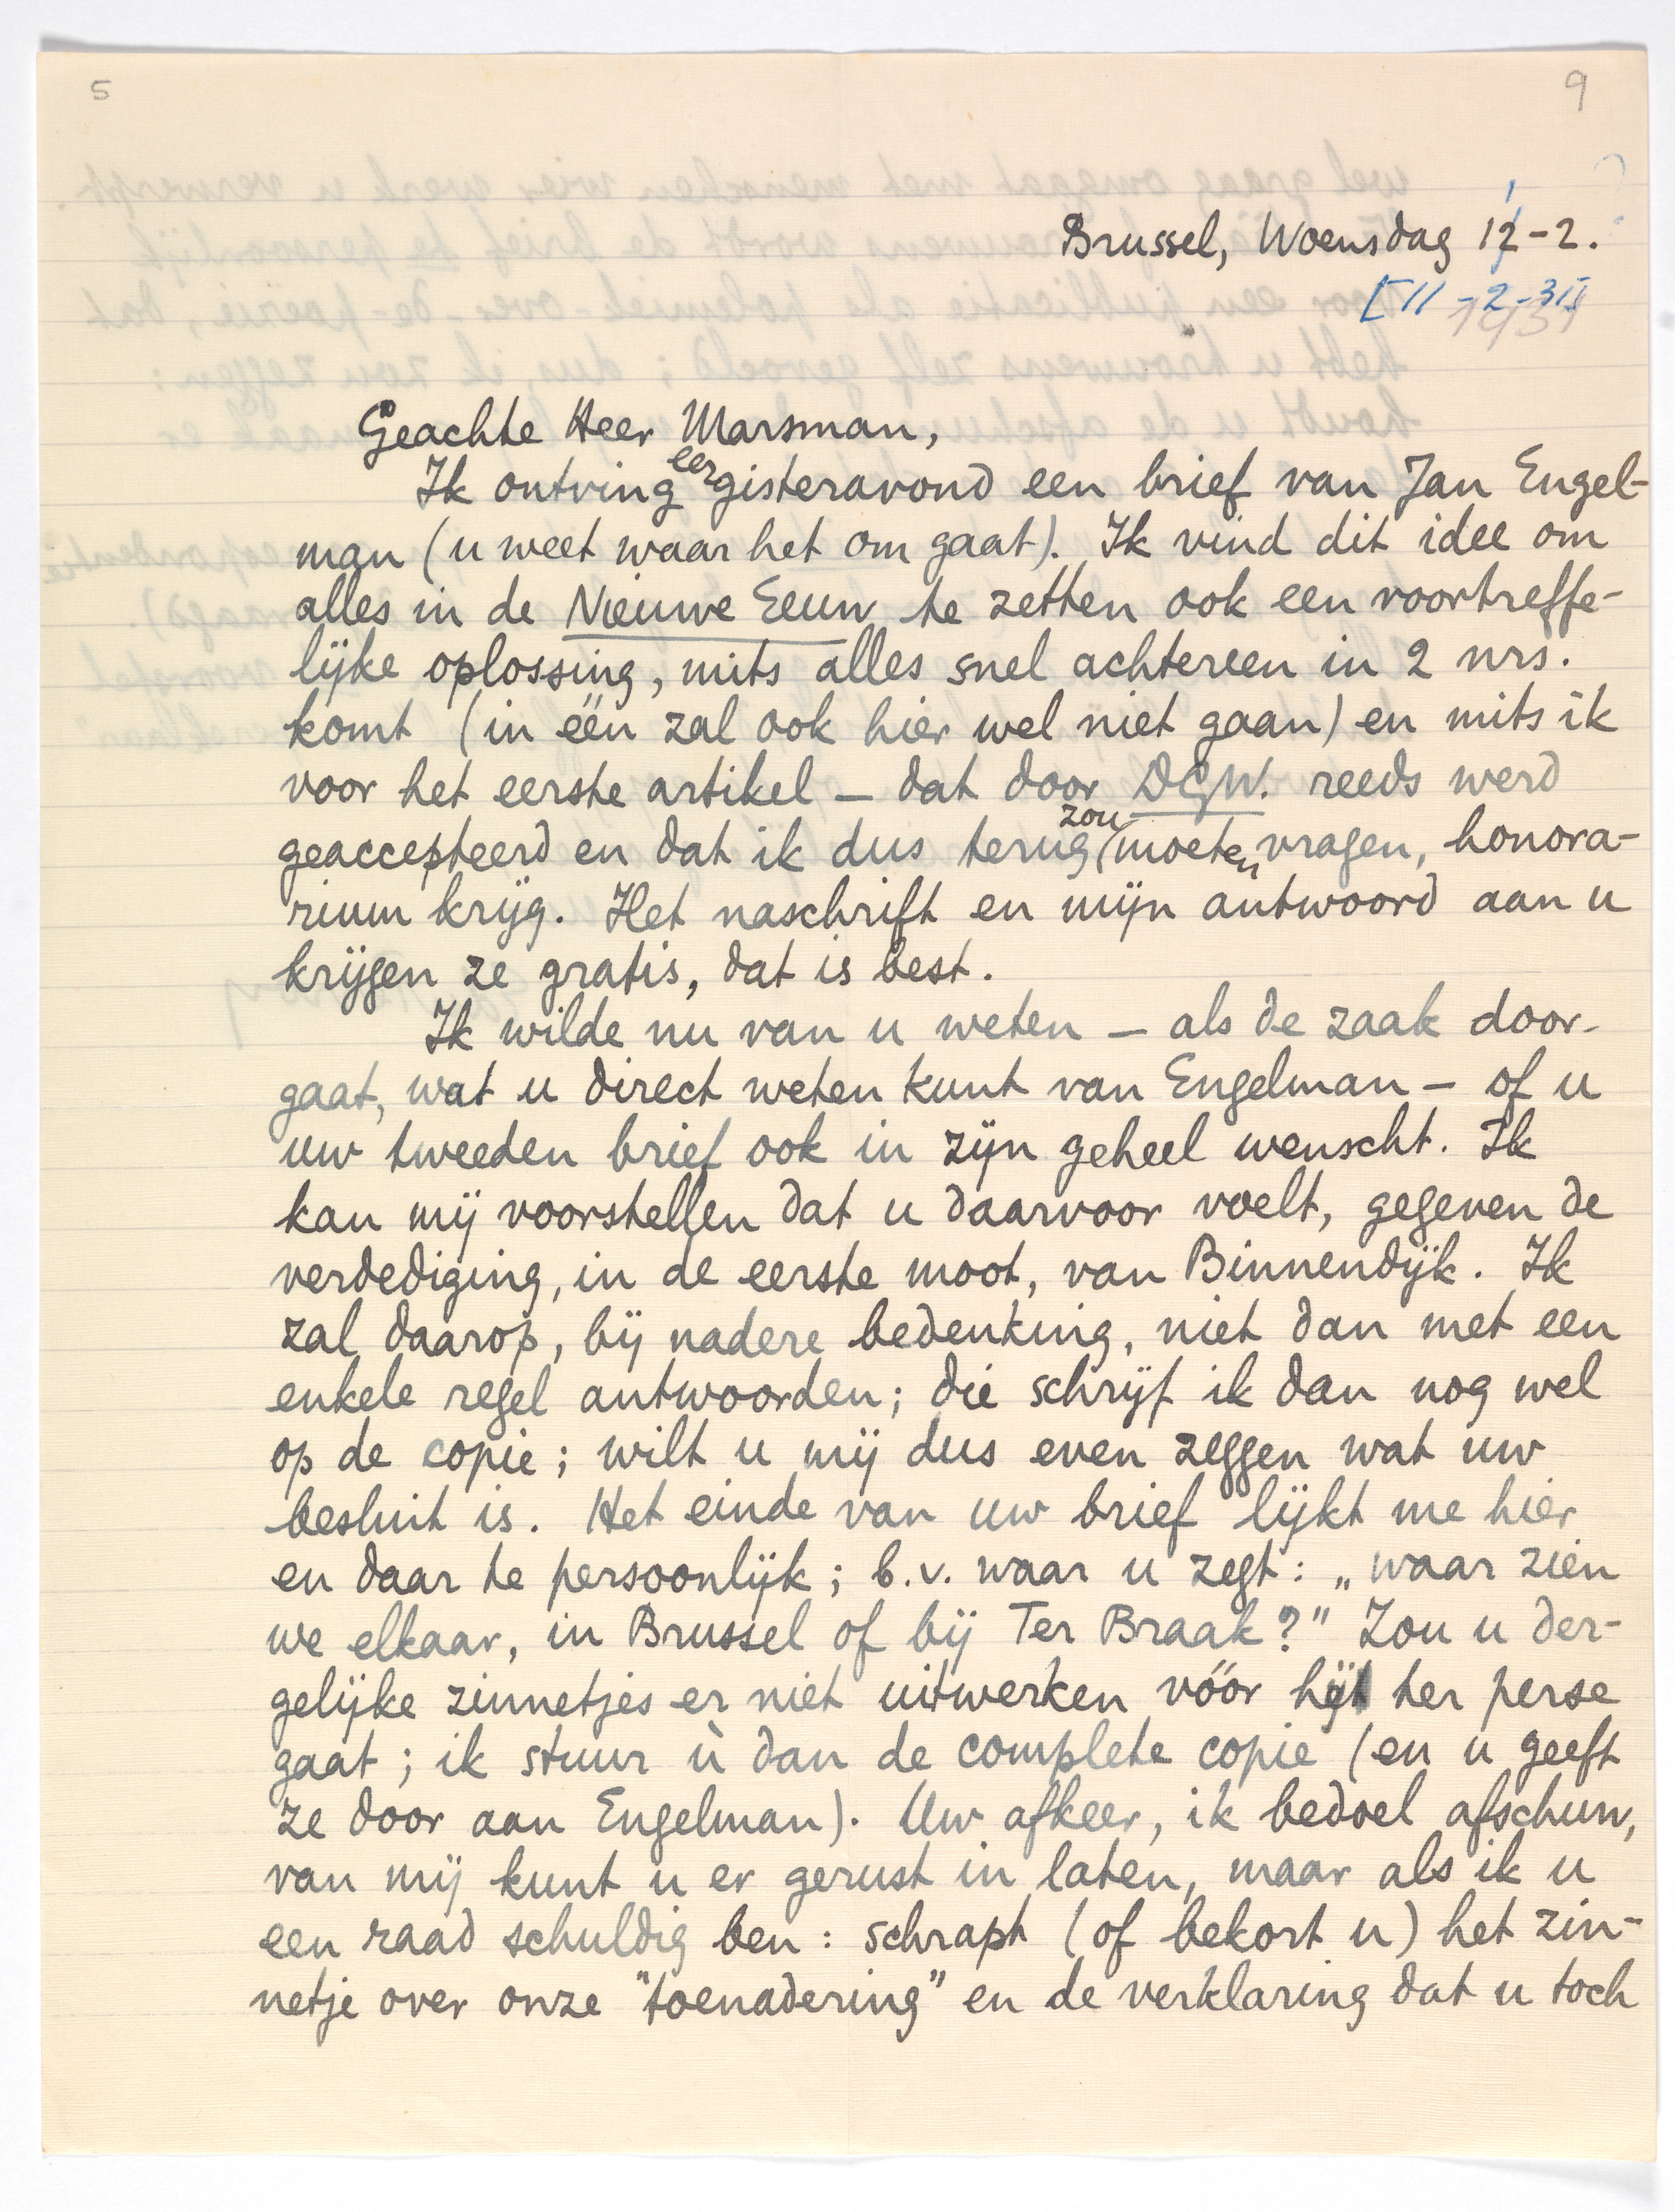 5
9
Brussel, Woensdag 12-2.
[11-2-31]
1931
Geachte Heer Marsman,
Ik ontving eergisteravond een brief van Jan Engel-
man (u weet waar het om gaat). Ik vind dit idee om
alles in de Nieuwe Eeuw te zetten ook een voortreffe-
lijke oplossing, mits alles snel achtereen in 2 nrs.
komt (in één zal ook hier wel niet gaan) en mits ik
voor het eerste artikel – dat door DGW. reeds werd
geaccepteerd en dat ik dus terug zou moeten vragen, honora-
rium krijg. Het naschrift en mijn antwoord aan u
krijgen ze gratis, dat is best.
Ik wilde nu van u weten – als de zaak door-
gaat, wat u direct weten kunt van Engelman – of u
uw tweeden brief ook in zijn geheel wenscht. Ik
kan mij voorstellen dat u daarvoor voelt, gegeven de
verdediging, in de eerste moot, van Binnendijk. Ik
zal daarop, bij nadere bedenking, niet dan met een
enkele regel antwoorden; die schrijf ik dan nog wel
op de copie; wilt u mij dus even zeggen wat uw
besluit is. Het einde van uw brief lijkt me hier
en daar te persoonlijk; b.v. waar u zegt: „waar zien
we elkaar, in Brussel of bij Ter Braak?" Zou u der-
gelijke zinnetjes er niet uitwerken vóór hij ter perse
gaat; ik stuur ù dan de complete copie (en u geeft
ze door aan Engelman). Uw afkeer, ik bedoel afschuw,
van mij kunt u er gerust in laten, maar als ik u
een raad schuldig ben: schrapt (of bekort u) het zin-
netje over onze "toenadering" en de verklaring dat u toch